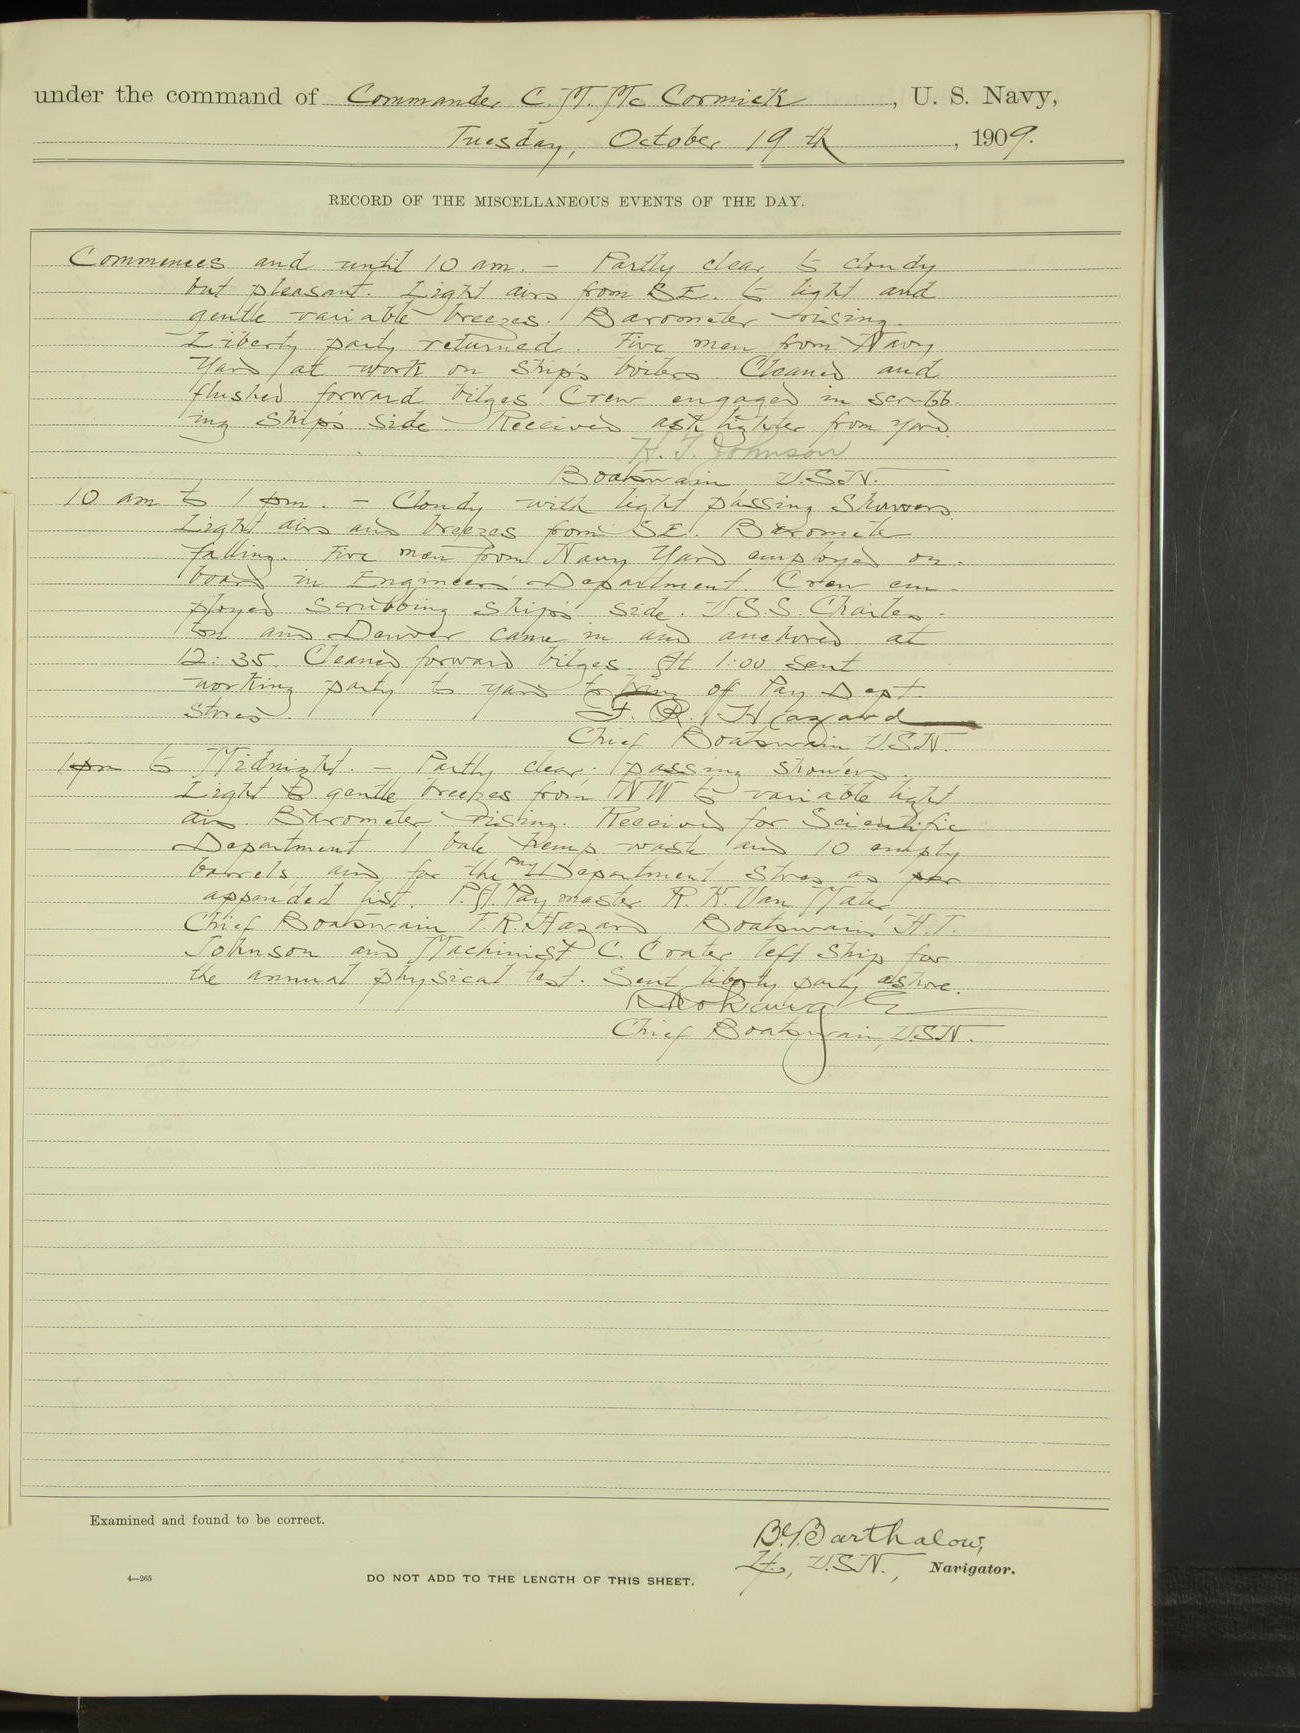 under the command of Commander C. M. Mc Cormick, U. S. Navy,
Tuesday, October 19th, 1909.
RECORD OF THE MISCELLANEOUS EVENTS OF THE DAY.
Commences and until 10 am. — Partly clear to cloudy
but pleasant. Light airs from SE. to light and
gentle variable breezes. Barometer rising.
Liberty party returned. Five men from Navy
Yard at work on Ship's boilers. Cleaned and
flushed forward bilges. Crew engaged in scrubb-
ing Ship's side. Received ash lighter from yard.
H. T. Johnson
Boatswain U.S.N.
10 am to 1 pm. — Cloudy with light passing showers.
Light airs and breezes from SE. Barometer
falling. Five men from Navy Yard employed on-
board in Engineers' Department. Crew em-
ployed scrubbing ship's side. U.S.S. Charles-
ton and Denver came in and anchored at
12:35. Cleaned forward bilges. At 1:00 sent
working party to yard to bring off Pay Dept.
stores.
F. R. Hazard
Chief Boatswain U.S.N.
1 pm to Midnight. — Partly clear; passing showers.
Light to gentle breezes from NW to variable light
airs. Barometer rising. Received for Scientific
Department 1 bale hemp waste and 10 empty
barrels and for the Pay Department stores as per
appended list. P.A. Paymaster R. K. Van Mater
Chief Boatswain F. R. Hazard Boatswain H. T.
Johnson and Machinist C. Crater left ship for
the annual physical test. Sent liberty party ashore.
Chief Boatswain, U.S.N.
Examined and found to be correct.
B. Barthalow,
Lt., U.S.N., Navigator.
4—265
DO NOT ADD TO THE LENGTH OF THIS SHEET.